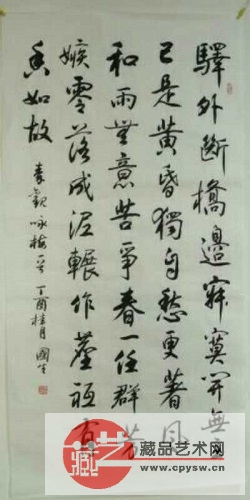 驛外斷橋邊寂寞開無主
已是黃昏獨自愁更著風
和雨無意苦爭春一任群芳
嫉零落成泥輾作塵祗有
香如故
咏梅 丁酉桂月 國生
藏艺
藏品艺术网
www.cpysw.cn